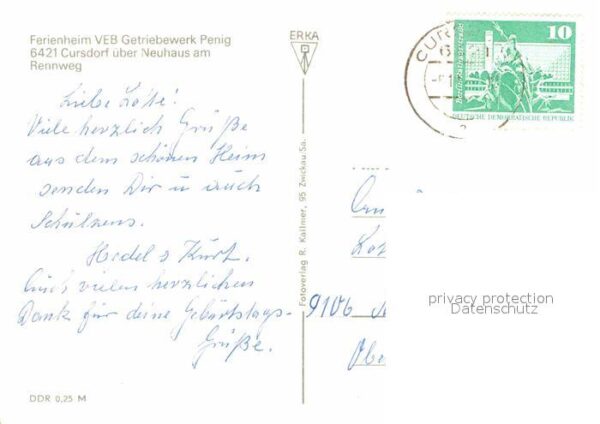 Ferienheim VEB Getriebewerk Penig
6421 Cursdorf über Neuhaus am
Rennweg
ERKA
10
DEUTSCHE DEMOKRATISCHE REPUBLIK
Liebe Lotte!
Viele herzlich Grüße
aus dem schönen Heim
senden Dir u auch
Schulzens.
Hedel s Kurt.
Auch vielen herzlichen
Dank für deine Geburtstags-
Grüße.
Fotoverlag R. Kallmer, 95 Zwickau/Sa.
9106
privacy protection
Datenschutz
DDR 0,25 M